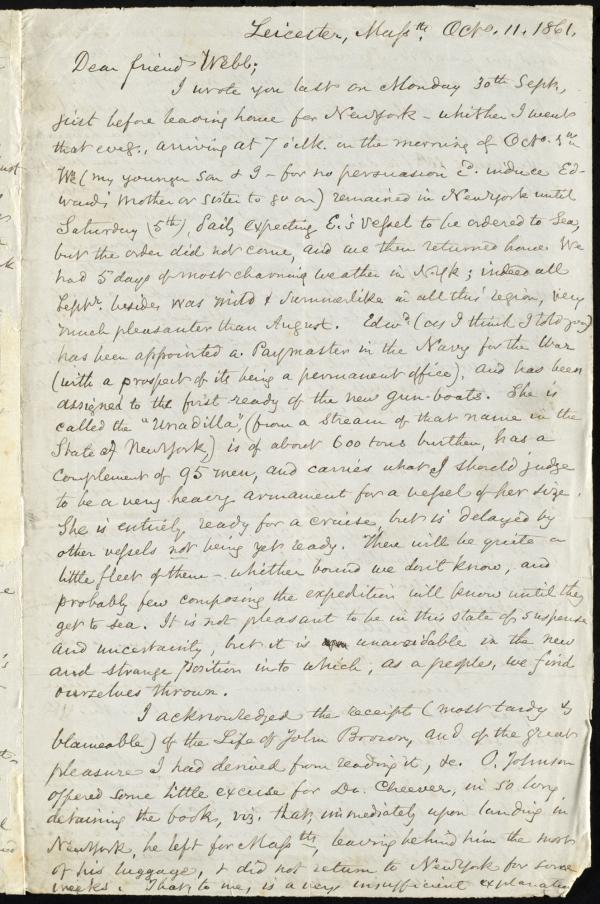 Leicester, Mass.ts Octo. 11. 1861.
Dear friend Webb;
I wrote you last on Monday 30th Sept.,
just before leaving home for NewYork – whither I went
that eveg., arriving at 7 o'clk. on the morning of Octo. 1st
We (my younger son & I – for no persuasion cd. induce Ed-
ward's mother or sister to go on) remained in NewYork until
Saturday (5th), daily expecting E.'s vessel to be ordered to Sea,
but the order did not come, and we then returned home. We
had 5 days of most charming weather in N.Yk; indeed all
Septr. besides was mild & summerlike in all this region, very
much pleasanter than August. Edwd. (as I think I told you)
has been appointed a Paymaster in the Navy for the War
(with a prospect of its being a permanent office), and has been
assigned to the first ready of the new gun-boats. She is
called the "Unadilla", (from a stream of that name in the
State of NewYork,) is of about 600 tons burthen, has a
complement of 95 men, and carries what I should judge
to be a very heavy armament for a vessel of her size.
She is entirely ready for a cruise, but is delayed by
other vessels not being yet ready. There will be quite a
little fleet of them – whither bound we don't know, and
probably few composing the expedition will know until they
get to sea. It is not pleasant to be in this state of suspense
and uncertainty, but it is unavoidable in the new
and strange position into which, as a people, we find
ourselves thrown.
I acknowledged the receipt (most tardy &
blameable) of the Life of John Brown, and of the great
pleasure I had derived from reading it, &c. O. Johnson
offered some little excuse for Dr. Cheever, in so long
detaining the books, viz. that, immediately upon landing in
NewYork, he left for Mass.tts, leaving behind him the most
of his luggage, & did not return to NewYork for some
weeks. That, to me, is a very insufficient explanation